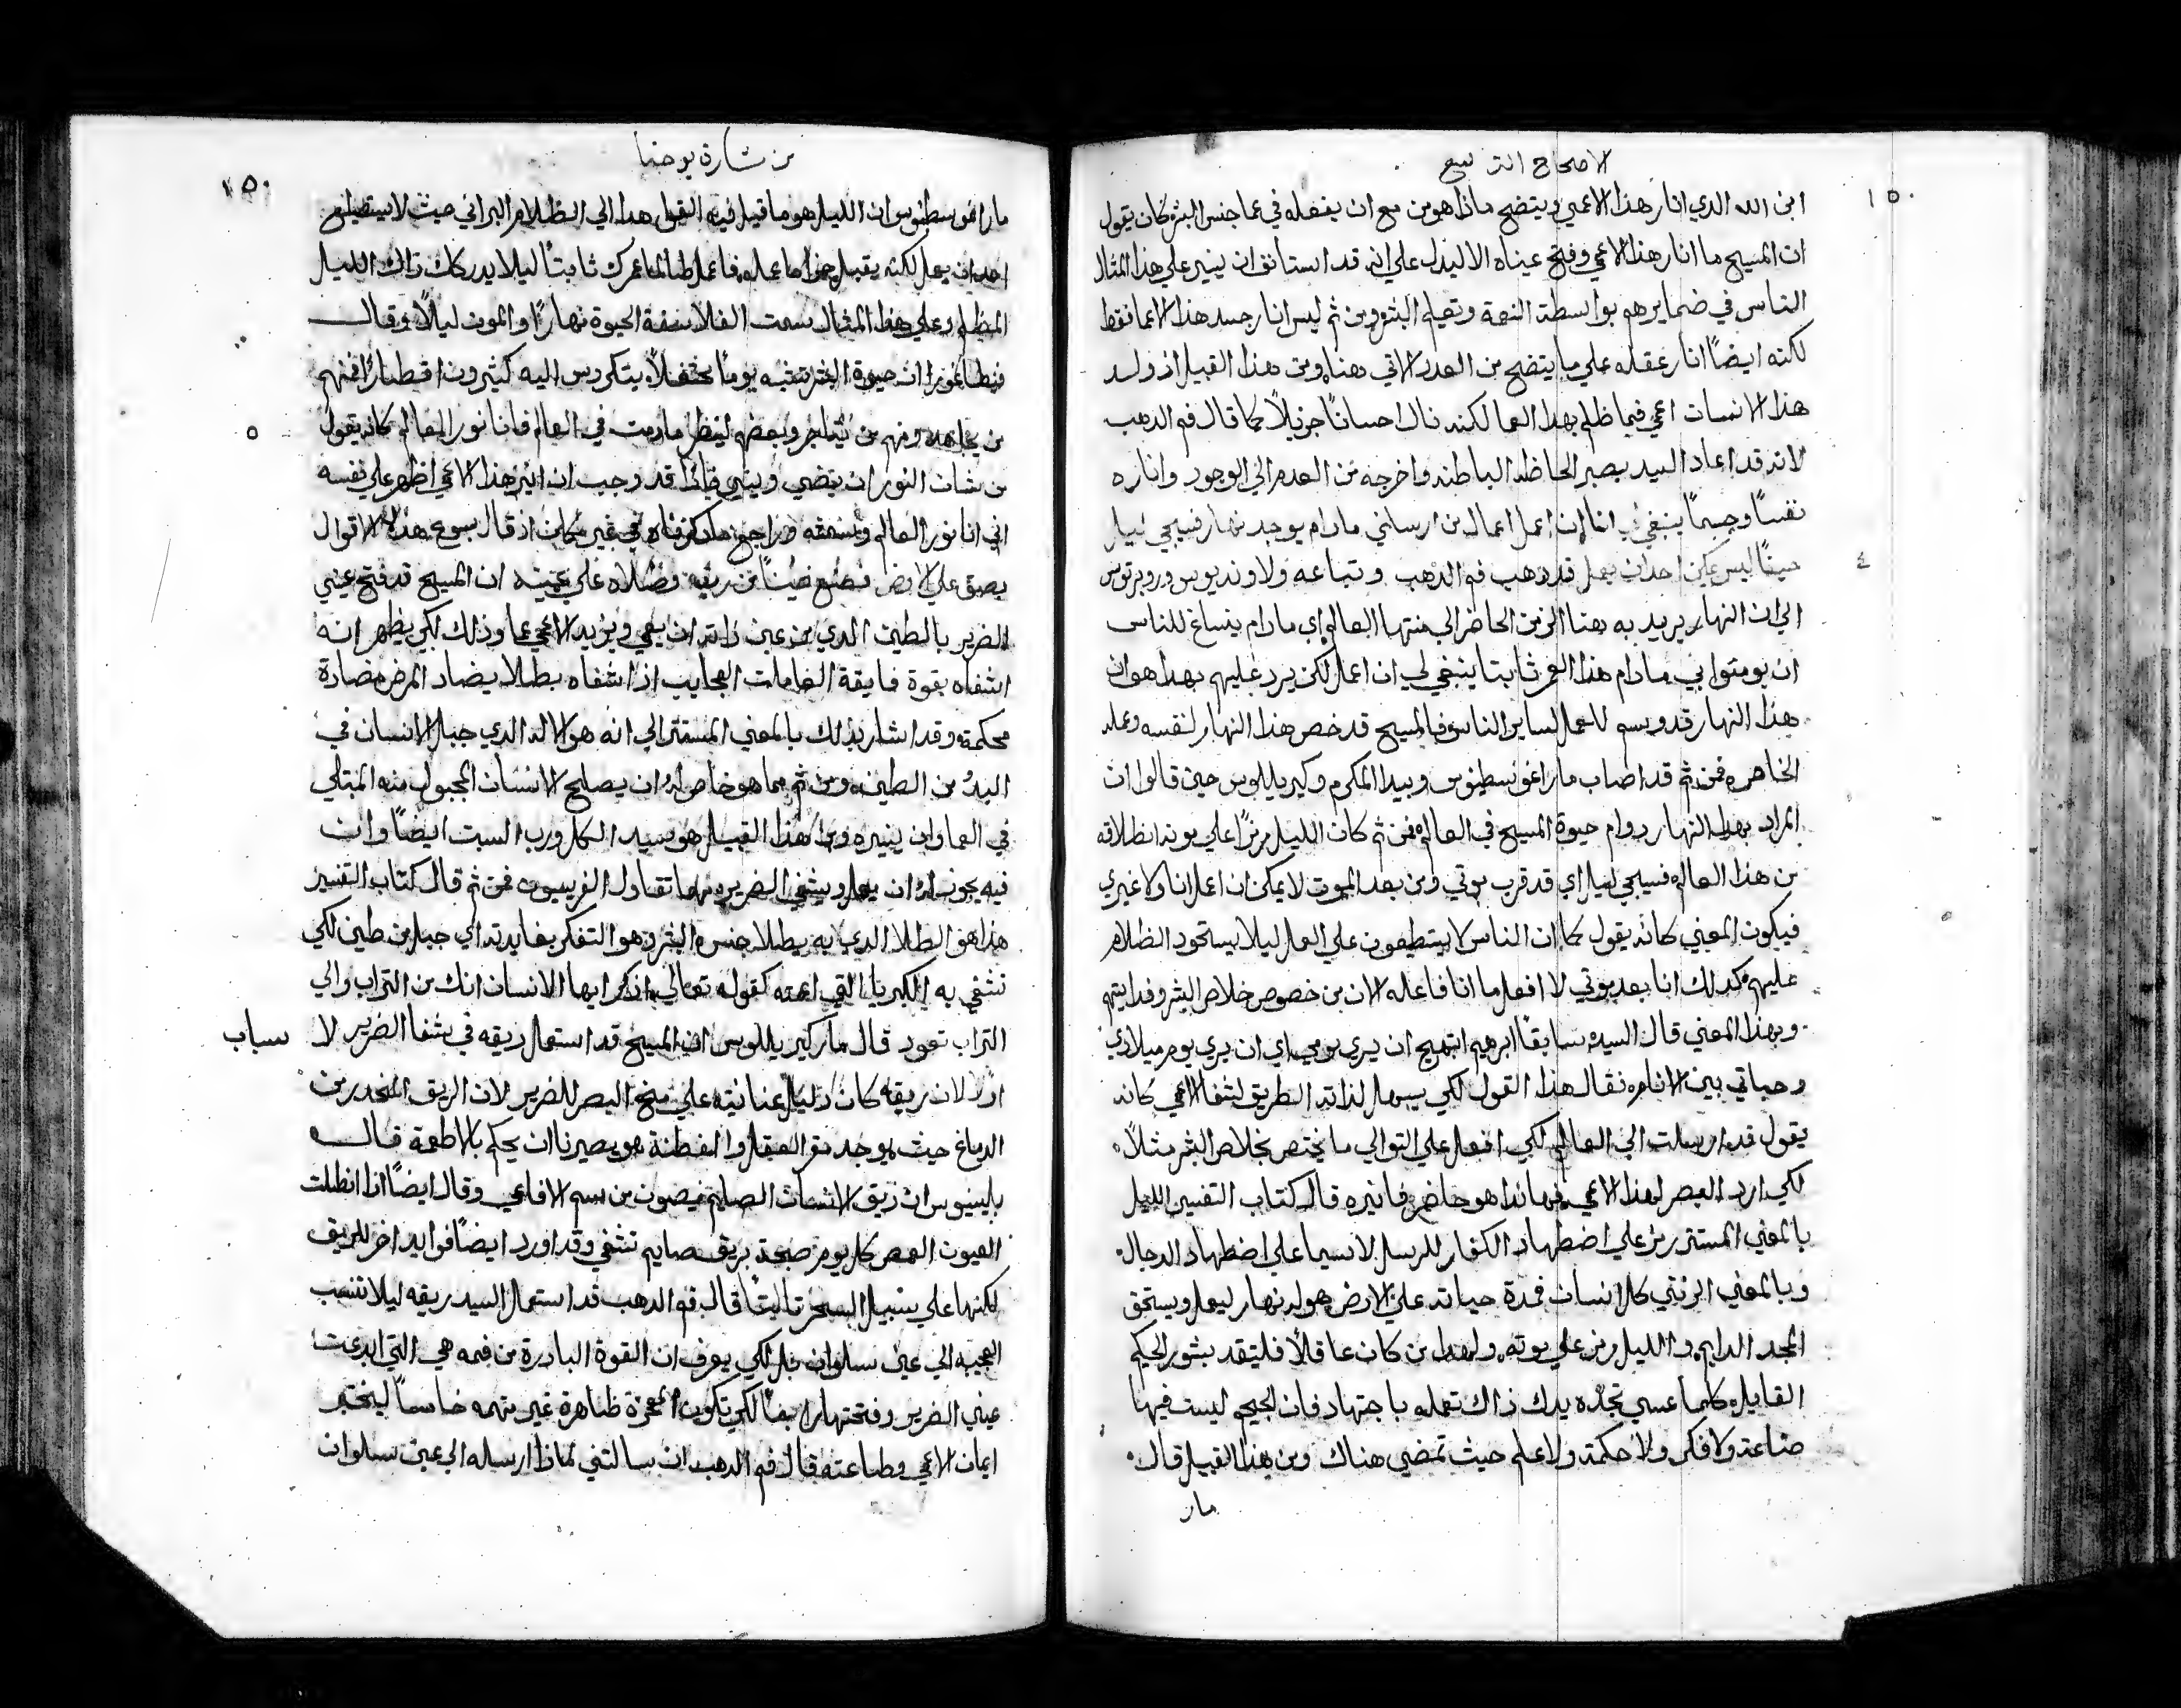 الاصحاح التاسع
١٥٠
ابن الله الدي انار هذا الاعمي ويتضح ماذا هو من مع ان بفعله في عما جنس البشر كان يقول
ان المسيح ما انار هذا الاعمي وفتح عيناه الا ليدل علي انه قد استانف ان ينير علي هذا المثال
الناس في ضمايرهم بواسطة النعمة وتعليم البشر ومن ثم ليس انار جسد هذا الاعما فقط
لكنه ايضًا انار عقله علي ما يتضح من العدد الاتي هناه ومن هذا القبيل اذ ولد
هذا الانسان اعمي فيما ظلم بهدا العما لكنه نال احسانًا جزيلًا كما قال فم الدهب
لانه قد اعاد السيد بصر الحاظه الباطنه واخرجه من العدم الي الوجود واناره
نفسًا وجسمًا ينبغي لي انا ان اعمل اعمال من ارسلني مادام يوجد نهار فسيجي ليل
٤
حينًا ليس يمكن احد ان يعمل قد ذهب فم الدهب وتباعه ولاونديوس وروبرتوس
الي ان النهار يريد به هنا الزمن الحاضر الي منتها العالم اي مادام ينساغ للناس
ان يومنوا بي مادام هذا العمر ثابتا ينبغي لي ان اعمل لكن يرد عليهم بهدا هو ان
هذا النهار قد وسم للعمل لساير الناس فالمسيح قد خص هذا النهار لنفسه وعمله
الخاص ه فمن ثم قد اصاب مار اغوسطينوس وبيدا المكرم وكيريللوس حين قالوا ان
المراد بهدا النهار دوام حيوة المسيح في العالم فمن ثم كان الليل رمزًا علي موته انطلاقه
من هذا العالم فسيجي ليل اي قد قرب موتي ومن بعد الموت لا يمكن ان اعمل انا ولا غيري
فيكون المعني كانه يقول كما ان الناس لا يستطيعون علي العمل ليلا ليستحود الظلام
عليهم كدلك انا بعد موتي لا افعل ما انا فاعله الان من خصوص خلاص البشر وفدايتهم
وبهذا المعني قال السيد سابقًا ابرهيم ابتهج ان يري يومي اي ان يري يوم ميلادي
وحياتي بين الانام فقال هذا القول لكي يسهل لذاته الطريق لشفا الاعمي كانه
يقول قد ارسلت الي العالم لكي افعل علي التوالي ما يختص بخلاص البشر مثلًا
لكي ارد البصر لهذا الاعمي فهانذا هو حاضر فانيره قال كتاب التفسير الليل
بالمعني المستتر رمز علي اضطهاد الكفار للرسل لاسيما علي اضطهاد الدجال
وبالمعني الزتي كل انسان فمدة حياته علي الارض هو له نهار ليعمل ويستحق
المجد الدايم والليل رمز علي موته ولهدا من كان عاقلًا فليتقد بشور الحكيم
القايل كلما عسي تجده يدك ذاك تعمله باجتهاد فان الجحيم ليست فيها
صناعة ولا فكر ولا حكمة ولا علم حيث تمضي هناك ومن هذا القبيل قال
مار
من بشارة يوحنا
١٥٠
مار اغوسطنوس ان الليل هو ما قيل فيه القول هدا الي الظلام البراني حيث لا يستطيع
احد ان يعمل لكنه يقبل جزا ما عمله فاعمل طالما عمرك ثابتًا ليلا يدركك ذاك الليل
المظلم وعلي هذا المثال سمت الفلاسفة الحيوة نهارًا والموت ليلًا وقال
ان حيوة البشر تشبه يومًا محتفلًا يتكردس اليه كثيرون فمنهم
٥
من يجاهد ومنهم من يتاجر وبعضهم لينظر مادمت في العالم فانا نور العالم كانه يقول
من شان النور ان يضي وينير فاذًا قد وجب ان انير هذا الاعمي اظهر علي نفسه
اني انا نور العالم راجع ما ذكرناه في غير مكان اذ قال يسوع هذه الاقوال
بصق علي الارض فصنع طينًا من ريقه وطلاه علي عينيه ان المسيح قد فتح عيني
الضرير بالطين الدي من عين ذاته ان يعمي ويزيد الاعمي عما وذلك لكي يظهر انه
اشفاه بقوة فايقة الفاعلات العجايب اذ اشفاه بطلا يضاد المرض مضادة
محكمة وقد اشار بذلك بالمعني المستتر الي انه هو الاله الدي جبل الانسان في
البدء من الطين ومن ثم مما هو خاص له ان يصلح الانسان المجبول منه المبتلي
في العما وان ينيره ومن هذا القبيل هو سيد الكل ورب السبت ايضًا وان
فيه يجوز له ان يعمل ويشفي الضرير مهما تقاول الفريسيون فمن ثم قال كتاب التفسير
هذا هو الطلا الدي به يطلا جنس البشر وهو التفكر بفايدته اي جبل من طين لكي
تشفي به الكبريا التي اعمته كقوله تعالي اذكر ايها الانسان انك من التراب والي
التراب تعود قال مار كيريللوس ان المسيح قد استعمل ريقه في شفا الضرير لاسباب
اولا لان ريقه كان دليل عنايته علي منح البصر للضرير لان الريق المنحدر من
الدماغ حيث يوجد مقر العقل والفطنة هو يصيرنا ان نحكم بالاطعمة قال
بلينيوس ان ريق الانسان الصايم يصون من سم الافاعي وقال ايضًا اذا انطلت
العيون العمص كل يوم صبحة بريق صايم تشفي وقد اورد ايضًا فوايد اخر للريق
لكنها علي سبيل السحر ثالثًا قال فم الدهب قد استعمل السيد ريقه ليلا تنسب
العجيبه الي عين سلوان بل لكي يعرف ان القوة البادرة من فمه هي التي ابدعت
عيني الضرير وفتحتها رابعًا لكي تكون المعجزة ظاهرة غير متهمه خامسًا ليختبر
ايمان الاعمي وطاعته قال فم الدهب ان سالتني لماذا ارسله الي عين سلوان